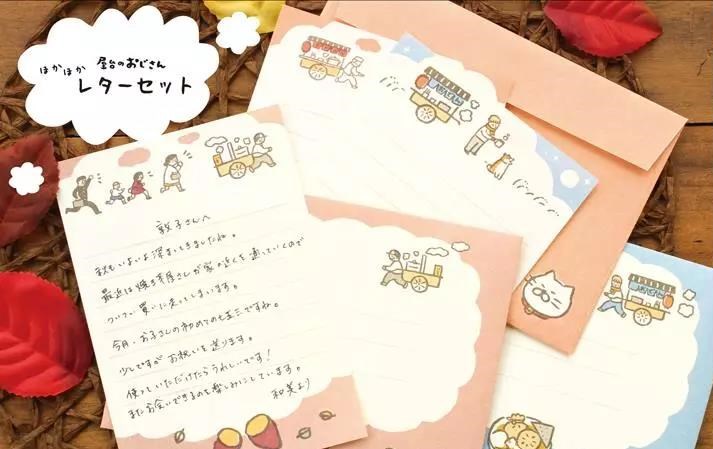 ほかほか 屋台のおじさん
レターセット
敦子さんへ
秋もいよいよ深まってきましたね。
最近は焼き芋屋さんが家の近くを通っていくので
ついつい買いに走ってしまいます。
今月、お子さんの初めての七五三ですね。
少しですが お祝いを送ります。
使っていただけたらうれしいです!
またお会いできるのを楽しみにしています。
和美より